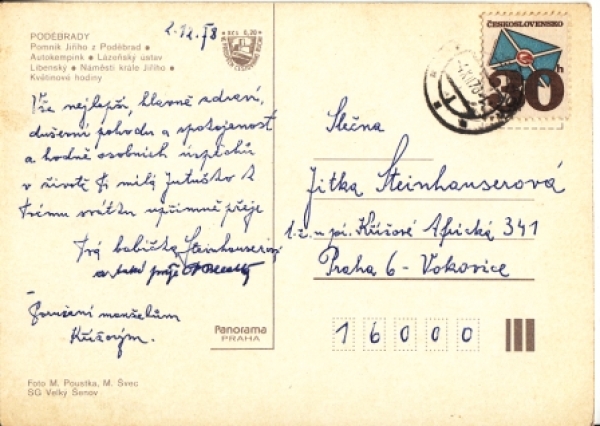 2.12.78
PODĚBRADY
Pomník Jiřího z Poděbrad •
Autokempink • Lázeňský ústav
Libenský • Náměstí krále Jiřího •
Květinové hodiny
Kčs 0,30
ČESKOSLOVENSKO
30h
Vše nejlepší, hlavně zdraví,
duševní pohodu a spokojenost
a hodně osobních úspěchů
v životě Ti milá Jituško k
Tvému svátku upřímně přeje
Tvá babička Steinhauserová
a také přeje
Poručení manželům
Křížovým.
Slečna
Jitka Steinhauserová
Africká 341
Praha 6 - Vokovice
16000
Panorama
PRAHA
Foto M. Poustka, M. Švec
SG Velký Šenov